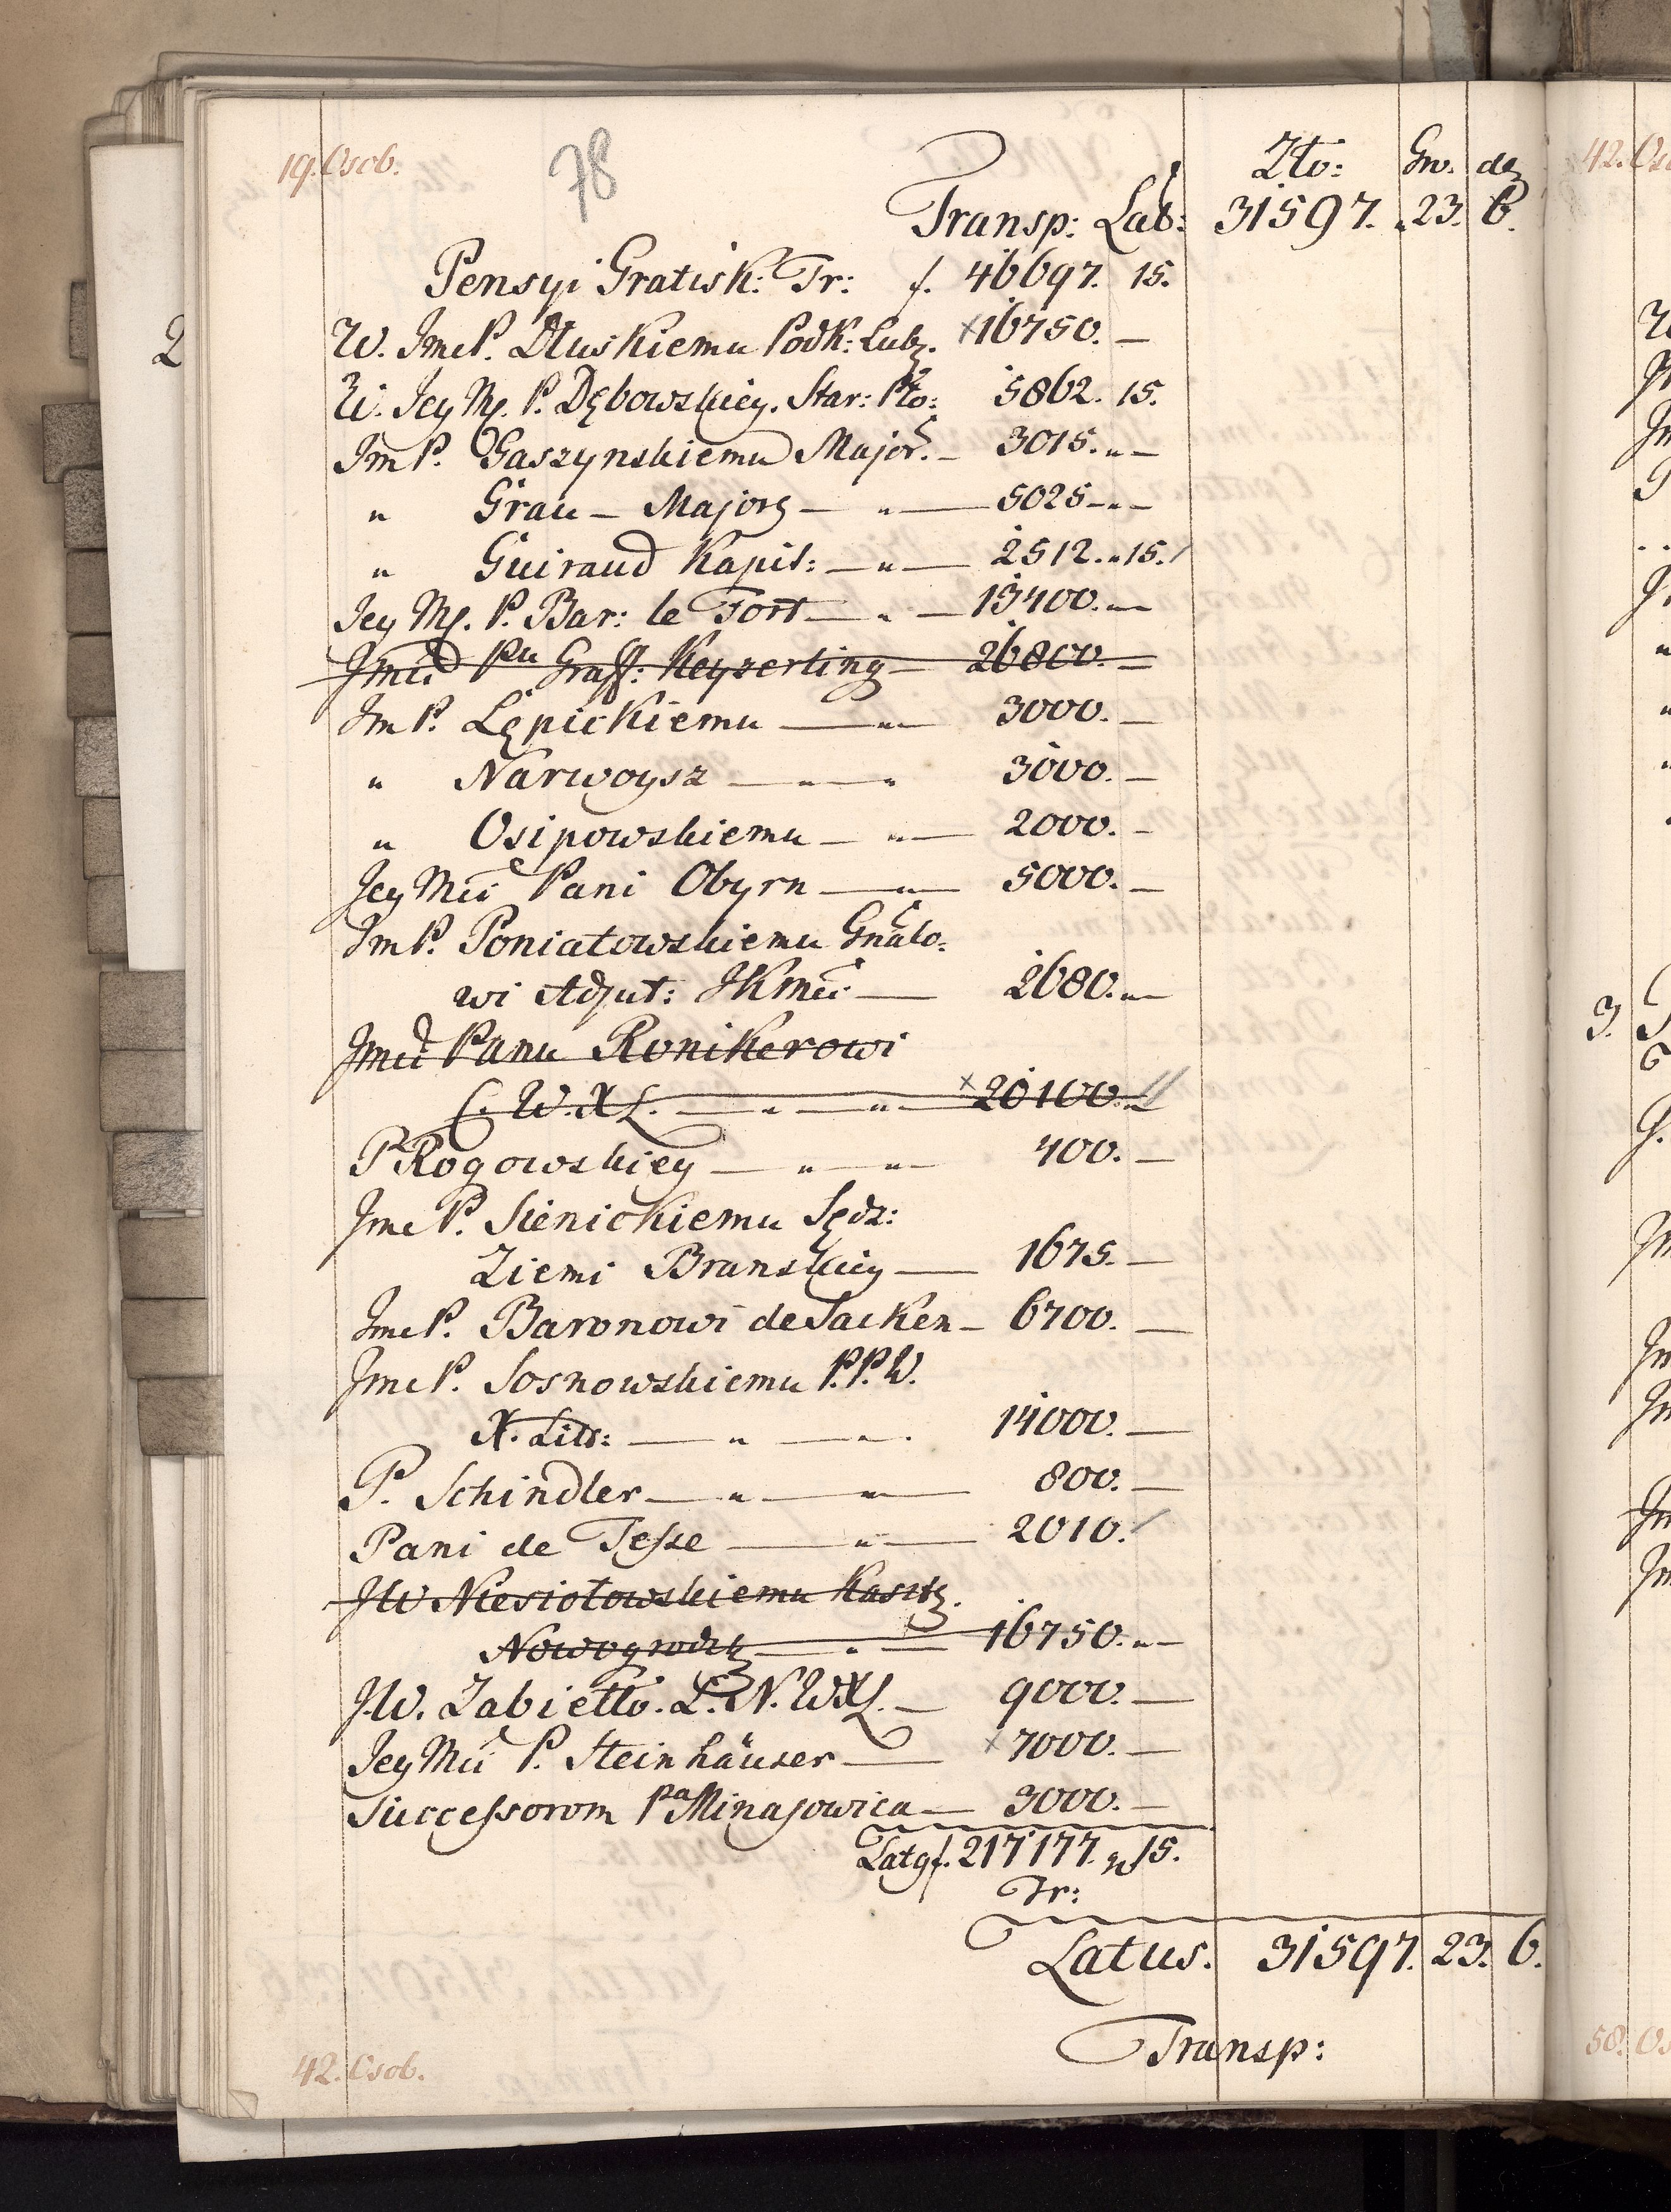 19. Osob.
78
Zło: Gr. de
Transp: Lat: 31597. 23. 6.
Pensyi Gratisk: Tr: f. 46697. 15.
W. ImcP. Dłuskiemu Podk: Lub. 16750. —
W. Jey M. P. Dębowskiey. Star: Pło: 5862. 15.
ImP. Gaszynskiemu Major. — 3015. „ —
„ Grau — Majorz — „ — 5025 — „ —
„ Guiraud Kapit: — „ — 2512. „ 15.
Jey M. P. Bar: le Fort — „ — 13400. —
Jmci Pu Graff: Keyzerling — 26800. —
ImP. Lępickiemu — „ — 3000. —
„ Narwoysz — „ — „ 3000. —
„ Osipowskiemu — „ — 2000. —
Jey Mci Pani Obyrn — „ — 5000. —
ImP. Poniatowskiemu Gnało-
wi Adjut: JKMci — 2680. „ —
Jmci Panu Ronikerowi
C. W. X L. — „ — „ — 20100. „ —
P. Rogowskiey — „ — „ — 400. —
JmcP. Sienickiemu Sędz:
Ziemi Branskiey — 1675. —
JmcP. Baronowi de Sacken — 6700. —
JmcP. Sosnowskiemu P.P.W.
X. Litt: — „ — „ . 14000. —
P. Schindler — „ — „ — 800. —
Pani de Tesse — „ — 2010.
JW Niesiołowskiemu Kaszt.
Nowogrodz — „ — 16750. „ —
J.W. Zabiełło. Ł. N. WXL. — 9000. —
Jey Mci P. Steinhäuser — 7000. —
Successorom Pa Minasowica — 3000. —
Latg f. 217177. „ 15.
Tr:
Latus. 31597. 23. 6.
Transp:
42. Osob.